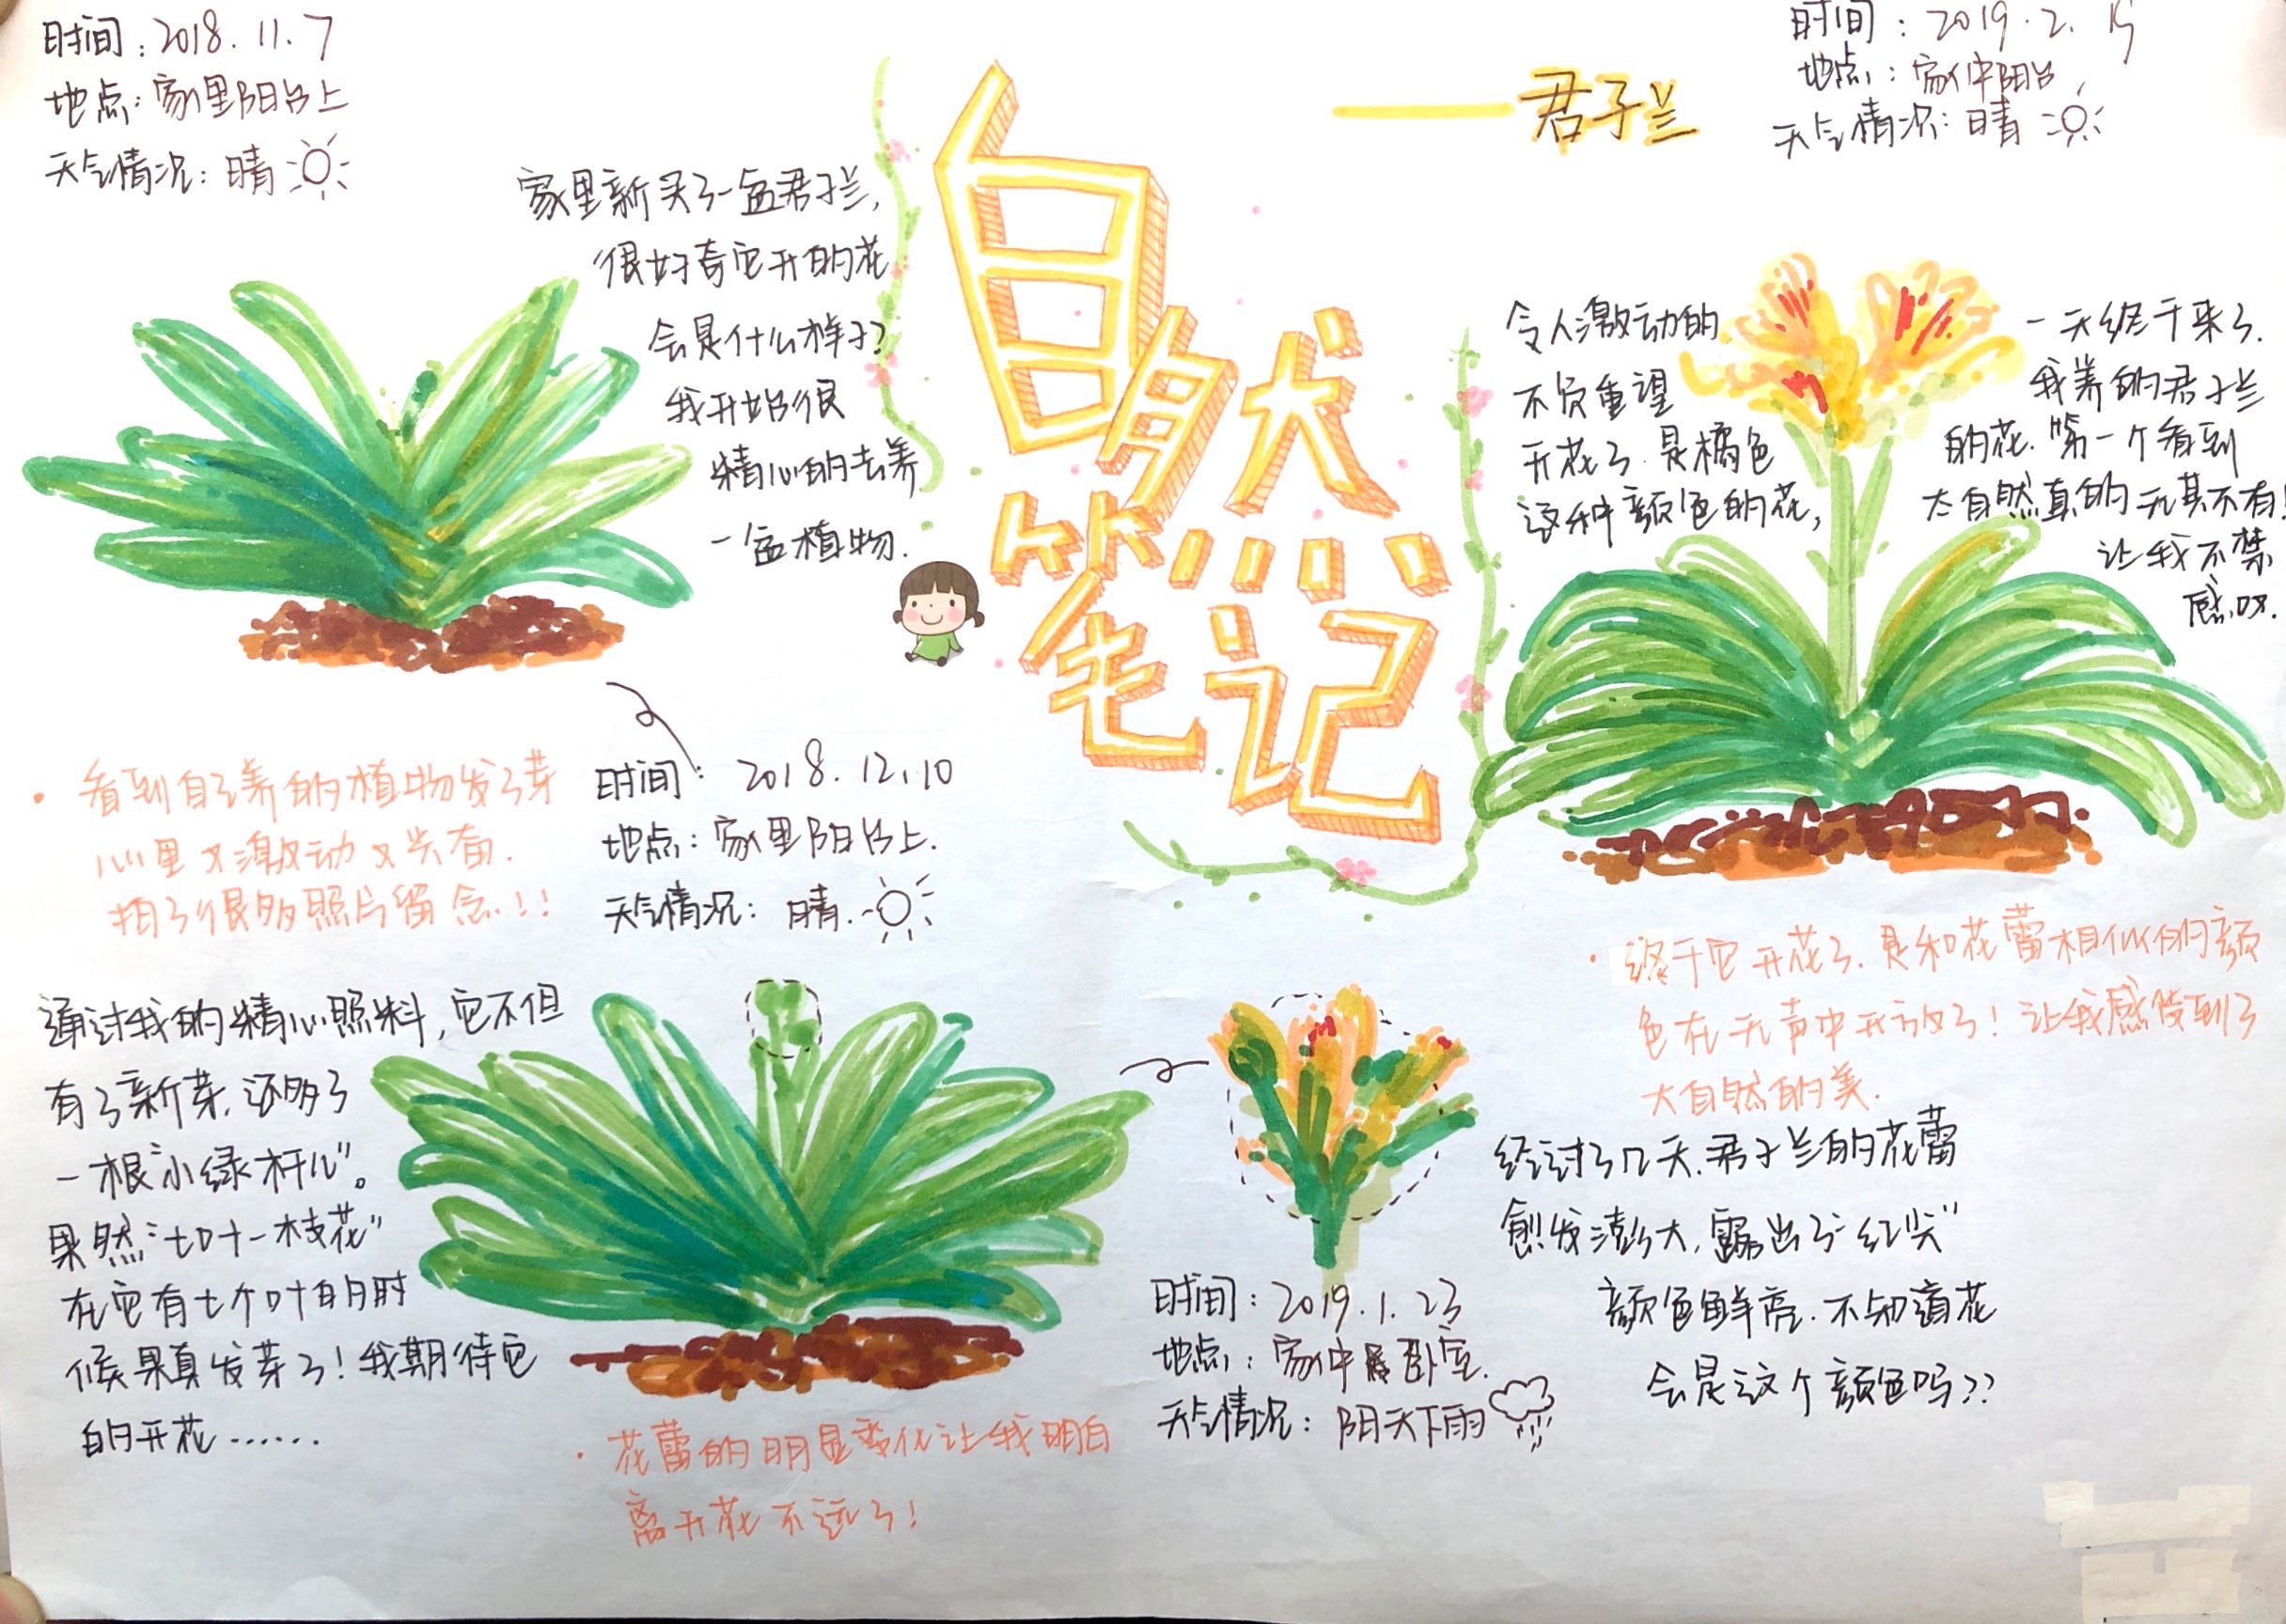 自然
笔记
——君子兰
时间：2018.11.7
地点：家里阳台上
天气情况：晴
家里新买了一盆君子兰，
很好奇它开的花
会是什么样子？
我开始很
精心的去养
一盆植物.
·看到自己养的植物发了芽
心里又激动又兴奋.
拍了很多照片留念!!
时间：2018.12.10
地点：家里阳台上.
天气情况：晴.
通过我的精心照料，它不但
有了新芽，还多了
一根“小绿杆儿”。
果然“七叶一枝花”
在它有七个叶的时
候果真发芽了！我期待它
的开花……
·花蕾的明显变化让我明白
离开花不远了！
时间：2019.1.23
地点：家中卧室.
天气情况：阴天下雨
经过了几天.君子兰的花蕾
愈发澎大，露出了“红尖”
颜色鲜亮.不知道花
会是这个颜色吗??
时间：2019.2.15
地点：家中阳台
天气情况：晴
令人激动的 一天终于来了.
不负重望 我养的君子兰
开花了.是橘色 的花.第一个看到
这种颜色的花， 大自然真的无其不有！
让我不禁
感叹.
·终于它开花了.是和花蕾相似的颜
色在无声中开放了！让我感受到了
大自然的美.